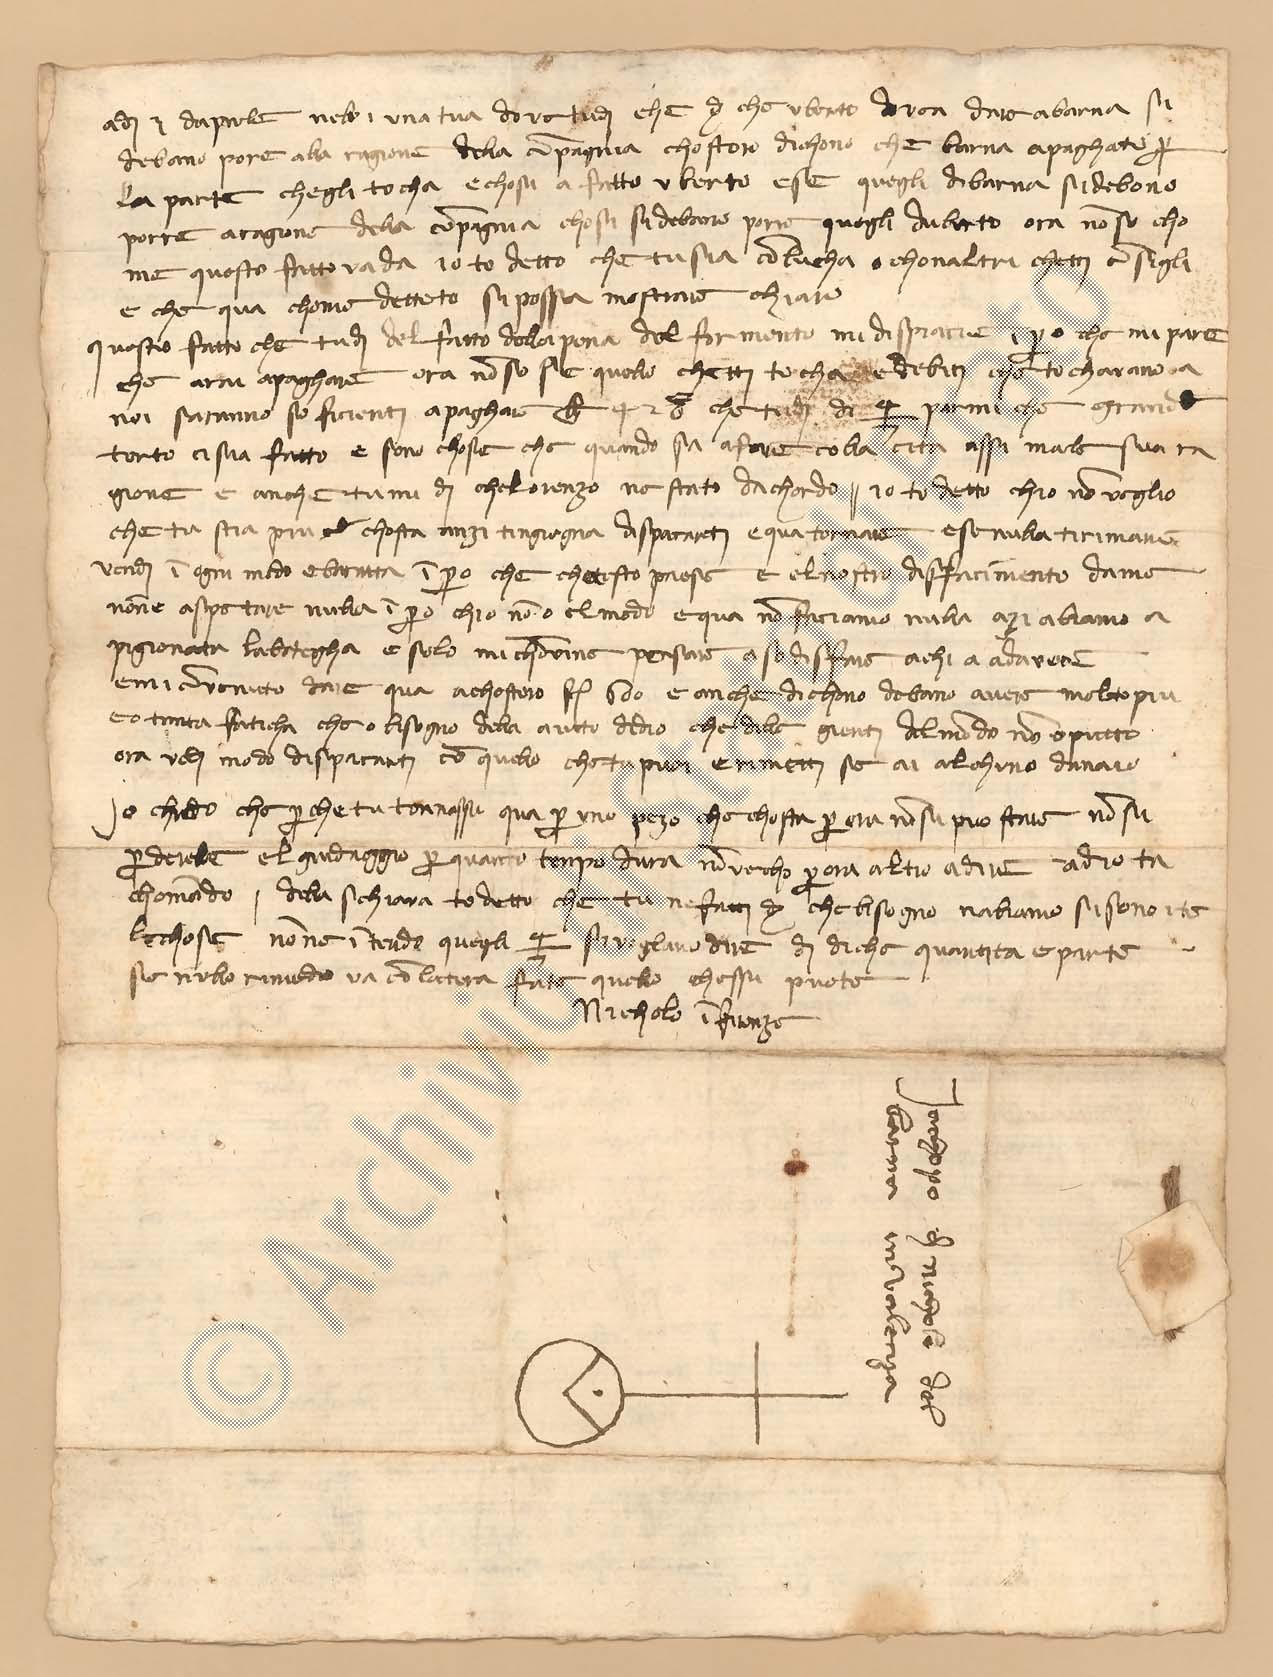 adi 2 daprile nebi 1 una tua dove tu di che d che uberto dovea dare abarna si
debano pore alla ragione della conpagnia chostoro dichono che barna apaghato per
la parte chegli tocha e chosi a fatto uberto e se quegli dibarna sidebono
porre aragione della conpagnia chosi si debano porre quegli duberto ora nonso cho
me questo fatto vada io to detto che tu sia con lucha o chonaltri chetti consigli
e che qua chome detteto si possa mostrare chiaro
questo fatto che tu di del fatto dellapena del formento mi dispiacie inpero che mi pare
che arai apaghare ora nonso se quello chetti tocha e debiti che tocharano a
noi saranno soficienti apaghare che tu di di parmi che grande
torto ci sia fatto e sono chose che quando sia afare colla cita assi male sua ra
gione e anche tu mi di chelorenzo ne stato dachordo / io to detto chio non voglio
che tu stia piu chosta anzi tingiegna dispacarti e qua tornare e se nulla tirimane
vendi in ogni modo e baratta in pero che chotesto paese e el nostro disfacimento dame
nonne aspetare nulla in pero chio non o el modo e qua non faciamo nulla anzi abiamo a
pigionata labotegha e solo mi chonviene pensare a sodisfare achi a adavere
emi convenuto dare qua achostoro e anche dichono debano avere molto piu
e o tanta faticha che o bisogno dello aiuto didio che delle gienti delmondo non o piutto
ora vedi modo dispacarti con quello chetu puoi e rimetti se ai alchuno danaio
Io chredo che perche tu tornassi qua per uno pezo che chosta per ora non si puo stare non si
perderebe el guadaggio per quanto tempo dura non vecho per ora altro adire adio ta
chomando / della schiava to detto che tu ne facci d che bisogno nabiamo si sono ite
le chose nonne intendo quegli si voglano dire di di che quantita e parte
se nullo rimedio va con lattera fate quello chessi puote
Nicholo in firenze
Iachopo di nicholo del
bene in valenza
© Archivio di Stato di Prato